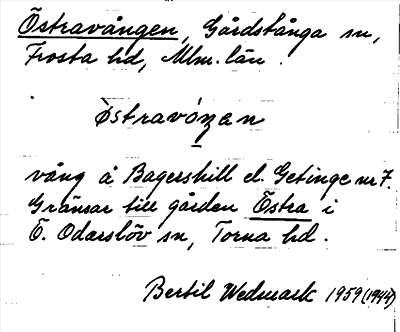 Östravången, Gårdstånga sn,
Frosta hd, Mlm. län.
östravóŋan
vång å Bagershill el. Getinge nr 7.
Gränsar till gården Östra i
Ö. Odarslöv sn, Torna hd.
Bertil Wedmark 1959 (1944)